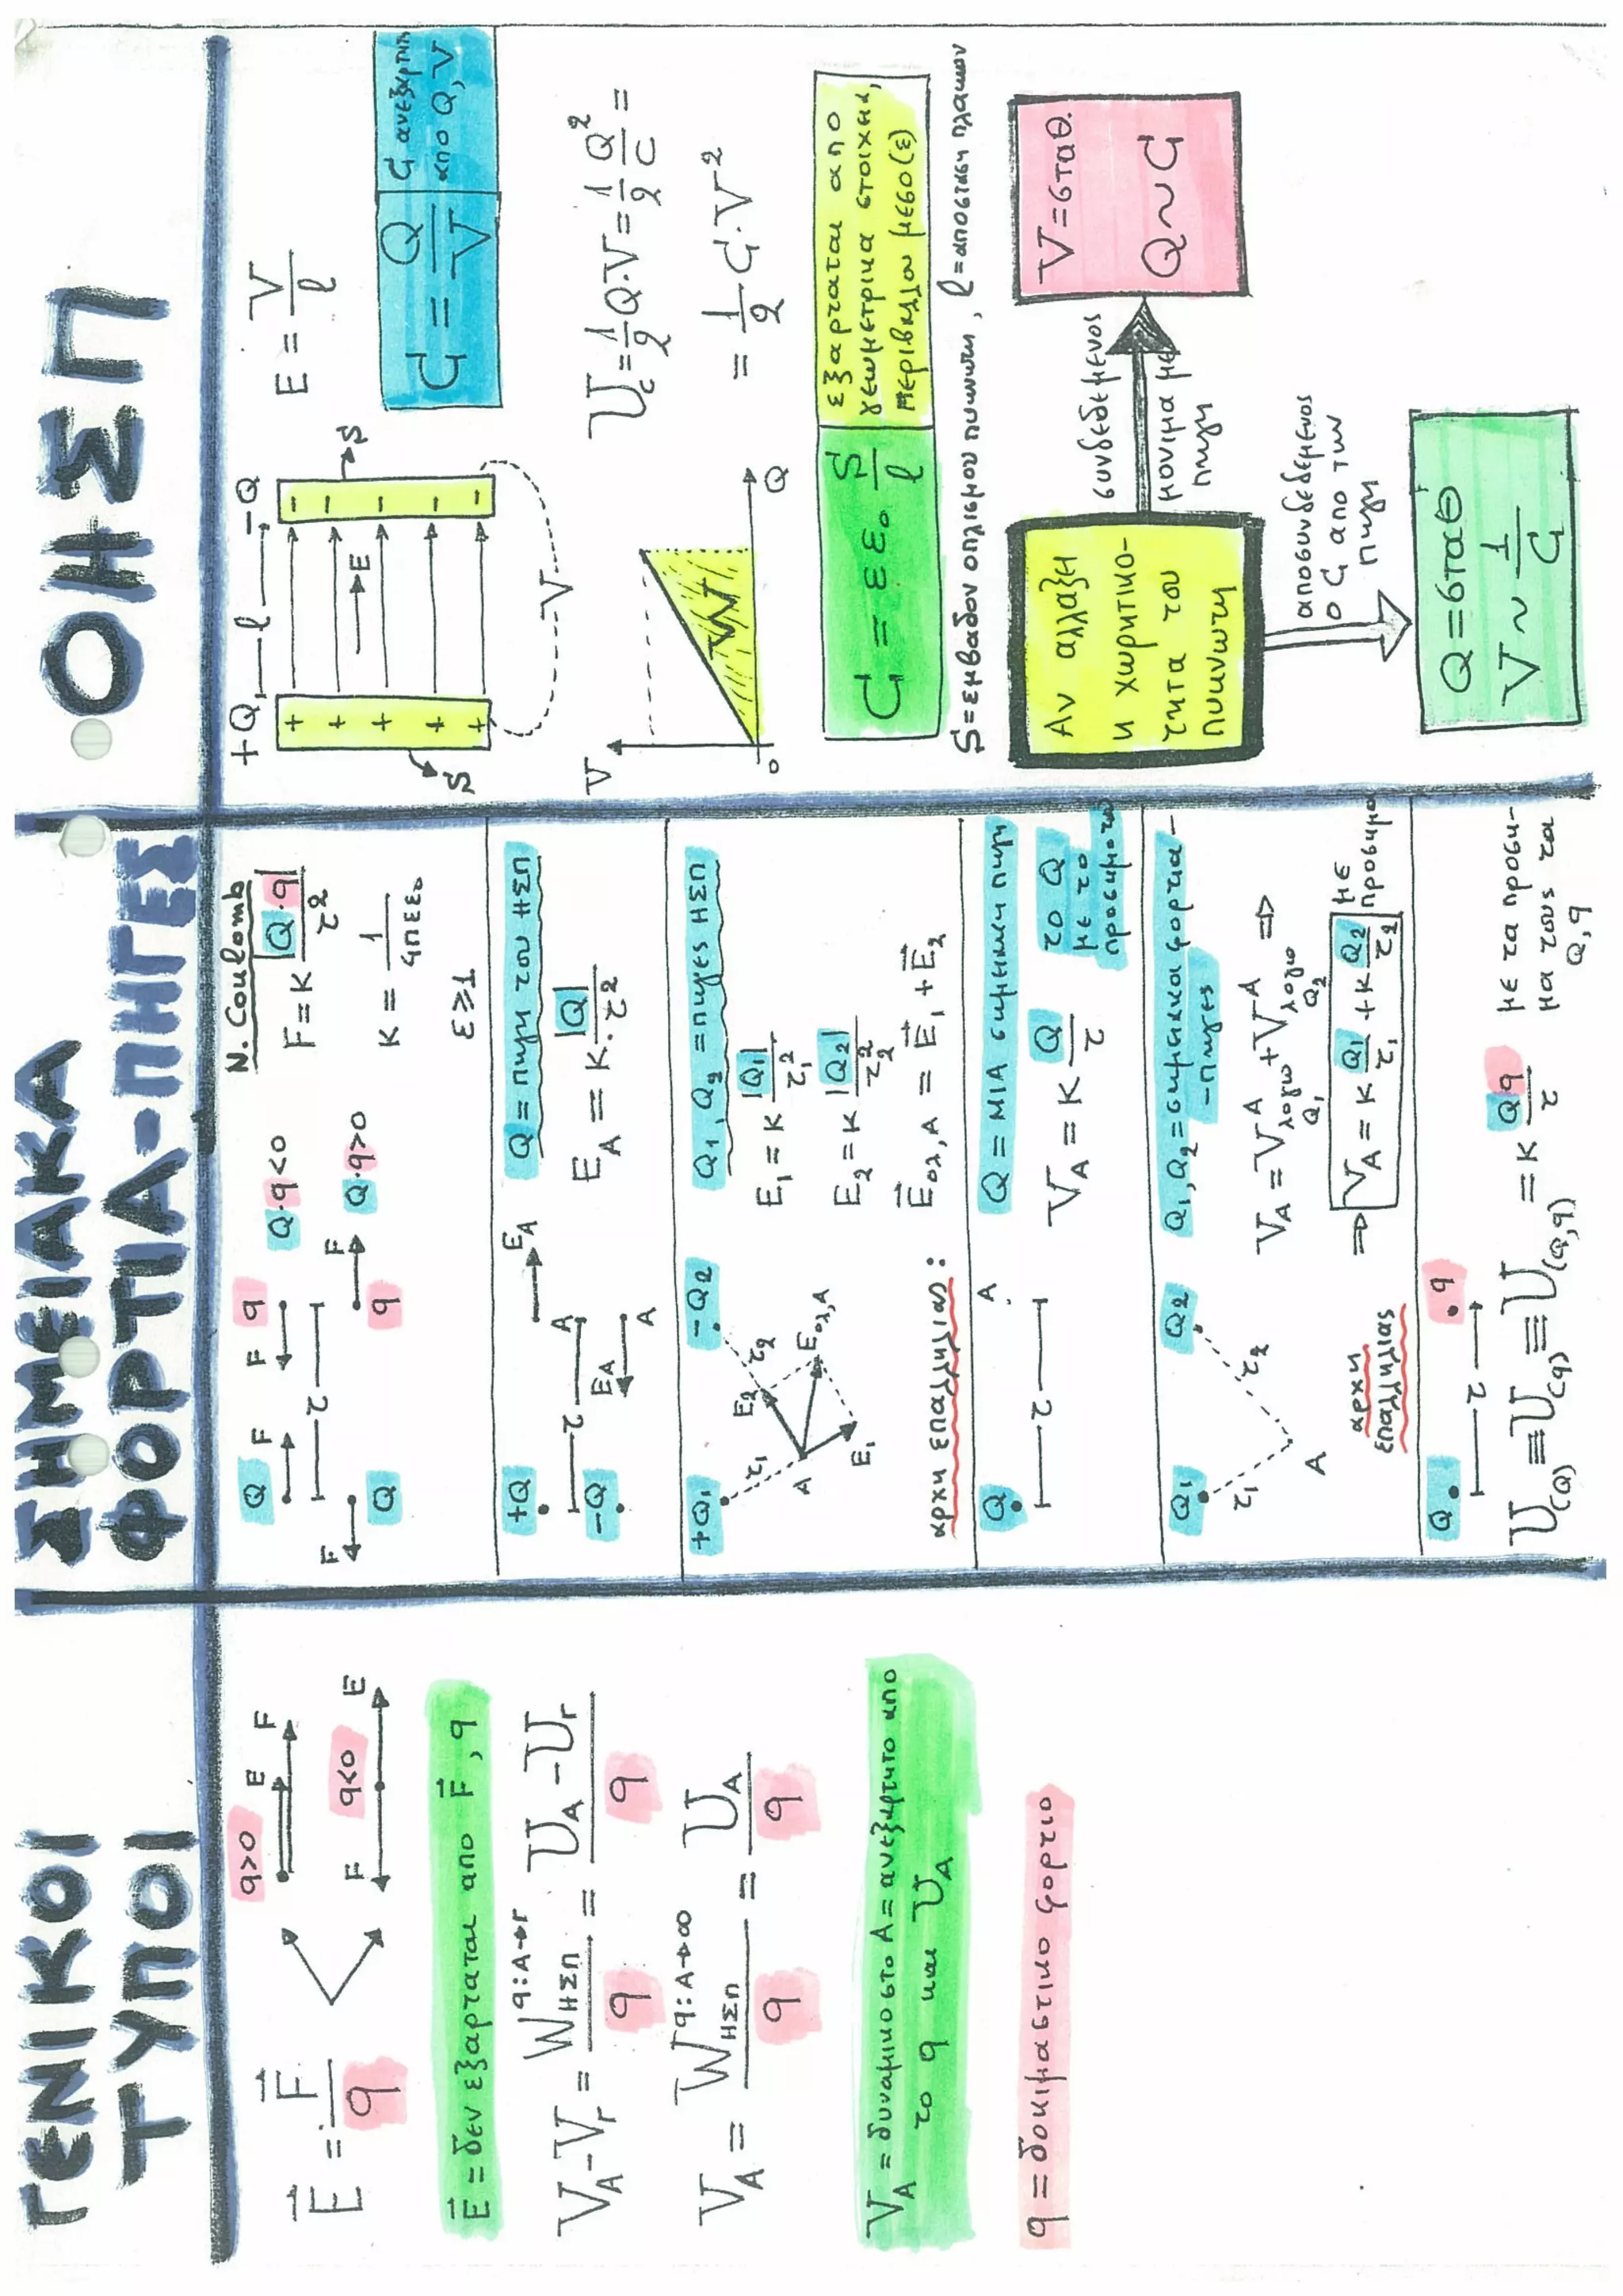 ΓΕΝΙΚΟΙ
ΤΥΠΟΙ
E = F / q
q>0
E F
q<0
F E
E = δεν εξαρταται απο F, q
V_A - V_Γ = W_ΗΣΠ^{q: A→Γ} / q = (U_A - U_Γ) / q
V_A = W_ΗΣΠ^{q: A→∞} / q = U_A / q
V_A = δυναμικο στο A = ανεξαρτητο απο
το q και U_A
q = δοκιμαστικο φορτιο
ΣΗΜΕΙΑΚΑ
ΦΟΡΤΙΑ-ΠΗΓΕΣ
Q F F q
r
F Q q F
Q·q<0
Q·q>0
N. Coulomb
F = K |Q·q| / r²
K = 1 / 4πεε₀
ε ≥ 1
+Q A E_A
r
-Q E_A A
Q = πηγη του ΗΣΠ
E_A = K· |Q| / r²
+Q₁ -Q₂
r₁ E₂ r₂
A E₁ E_ολ,A
αρχη επαλληλιας:
Q₁, Q₂ = πηγες ΗΣΠ
E₁ = K |Q₁| / r₁²
E₂ = K |Q₂| / r₂²
E_ολ,A = E₁ + E₂
Q A
r
Q = ΜΙΑ σημειακη πηγη
V_A = K Q / r
το Q
με το
προσημο του
Q₁ Q₂
r₁ r₂
A
αρχη
επαλληλιας
Q₁, Q₂ = σημειακα φορτια-
-πηγες
V_A = V^A λογω Q₁ + V^A λογω Q₂ ⇒
⇒ V_A = K Q₁ / r₁ + K Q₂ / r₂
με
προσημα
Q q
r
U(Q) ≡ U(q) ≡ U(Q,q) = K Qq / r
με τα προση-
μα τους τα
Q, q
ΟΗΣΠ
+Q l -Q
S E S
V
E = V / l
C = Q / V
C ανεξαρτητη
απο Q, V
V W Q 0
U_c = 1/2 Q·V = 1/2 Q² / C =
= 1/2 C·V²
C = ε ε₀ S / l
εξαρταται απο
γεωμετρικα στοιχεια,
περιβαλλον μεσο (ε)
S = εμβαδον οπλισμου πυκνωτη, l = αποσταση πλακων
Αν αλλαξη
η χωρητικο-
τητα του
πυκνωτη
συνδεδεμενος
μονιμα με
πηγη
V = σταθ.
Q ~ C
αποσυνδεδεμενος
ο C απο την
πηγη
Q = σταθ
V ~ 1 / C